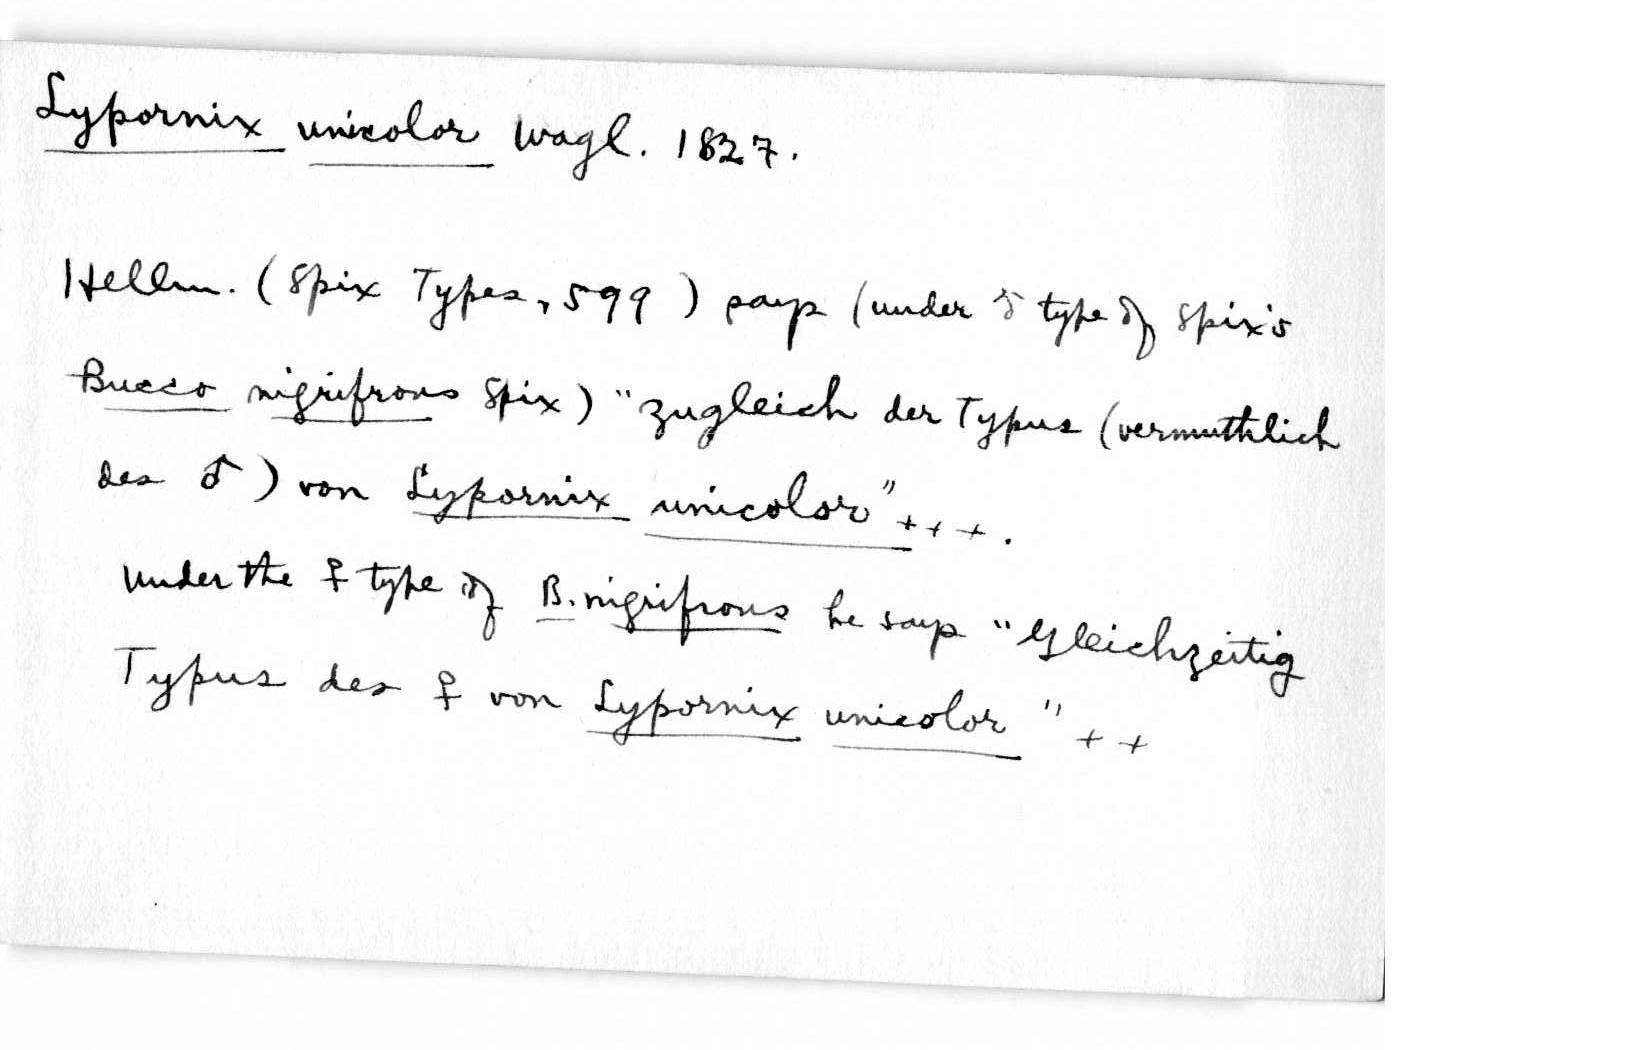 Lypornix unicolor Wagl. 1827.
Hellm. (Spix Types, 599) says (under ♂ type of Spix's
Bucco nigrifrons Spix) "zugleich der Typus (vermuthlich
des ♂) von Lypornix unicolor" + + + .
Under the ♀ type of B. nigrifrons he says "Gleichzeitig
Typus des ♀ von Lypornix unicolor" + +